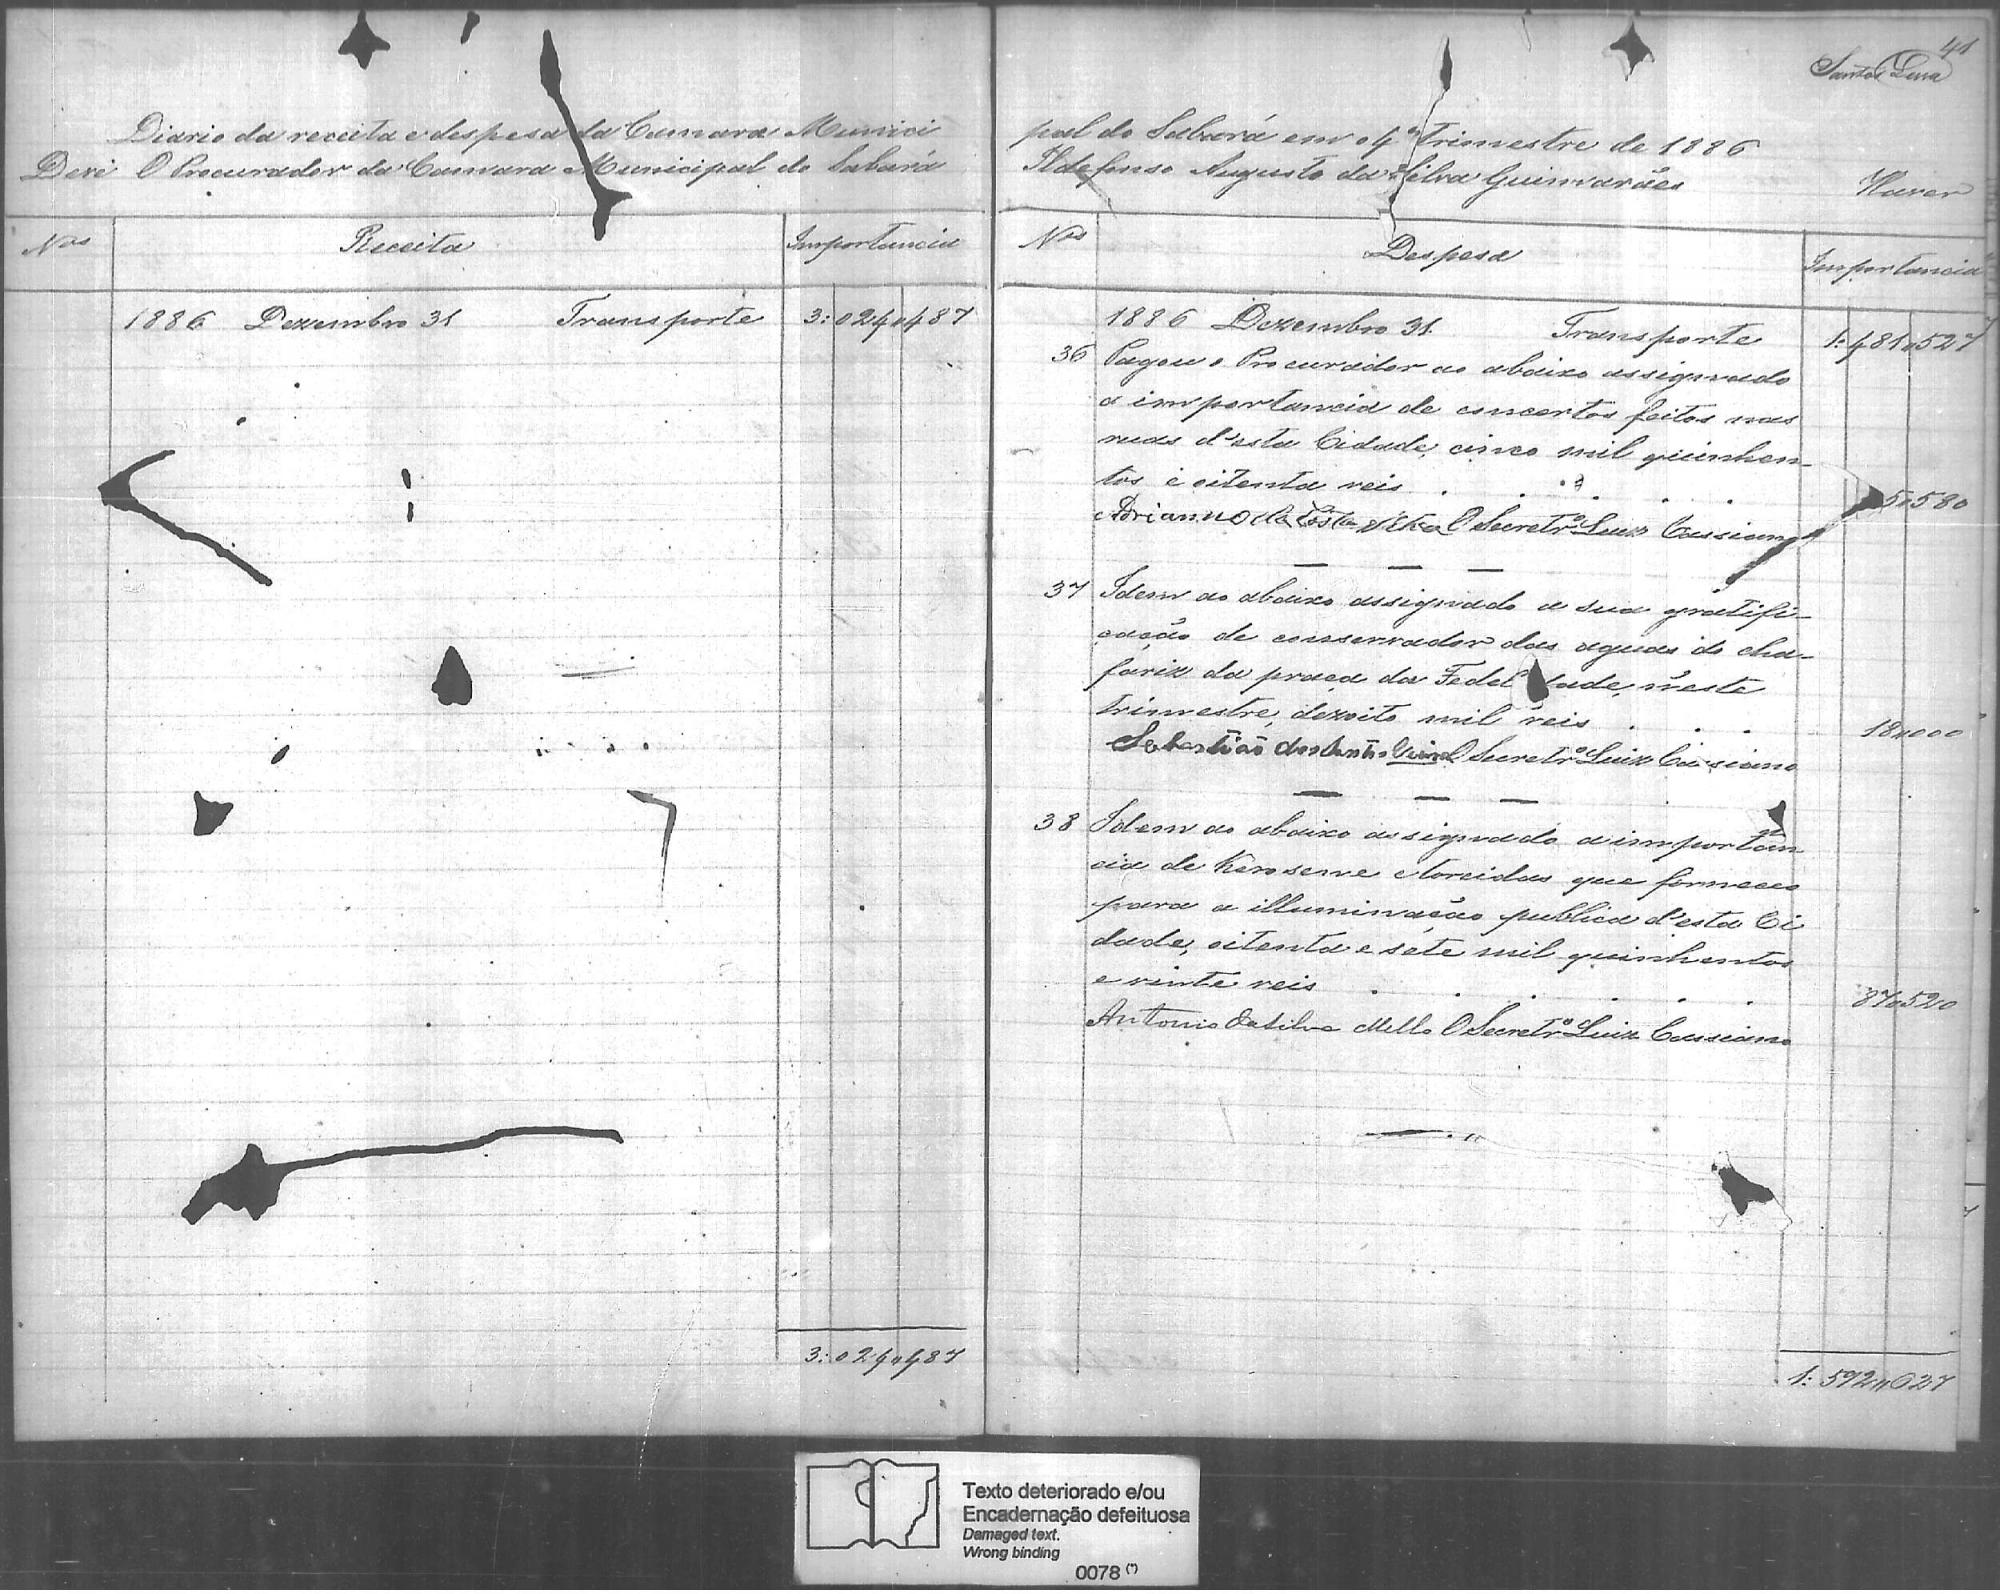 Diario da receita e despesa da Camara Munici
Deve O Procurador da Camara Municipal do Sabará
Nos Receita Importancia
1886 Dezembro 31 Transporte 3:024"487
3:024"487
41
Santos Lima
pal do Sabará em o 4º Trimestre de 1886
Ildefonso Augusto da Silva Guimarães Haver
Nos Despesa Importancia
1886 Dezembro 31. Transporte 1:481"527
36 Pagou o Procurador ao abaixo assignado
a importancia de concertos feitos nas
ruas d'esta Cidade, cinco mil quinhen-
tos e oitenta reis . . . . . . 5"580
Adrianno da Costa O Secretrº Luiz Cassiano
37 Idem ao abaixo assignado a sua gratifi-
cação de conservador das aguas do cha-
fariz da praça da Fedel dade, n'este
trimestre, dezoito mil reis . . . 18"000
Sebastião dos Santos O Secretrº Luiz Cassiano
38 Idem ao abaixo assignado a importan
cia de Kerosene e torcidas que forneceo
para a illuminação publica d'esta Ci
dade, oitenta e sete mil quinhentos
e vinte reis . . . . . . 87"520
Antonio da Silva Mello O Secretrº Luiz Cassiano
1:592"627
Texto deteriorado e/ou
Encadernação defeituosa
Damaged text.
Wrong binding
0078 (*)